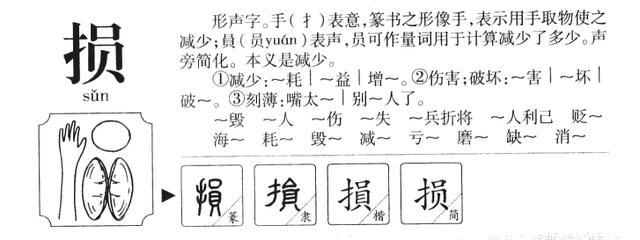 损
sǔn
形声字。手(扌)表意,篆书之形像手,表示用手取物使之
减少;員(员yuán)表声,员可作量词用于计算减少了多少。声
旁简化。本义是减少。
①减少:～耗｜～益｜增～。②伤害;破坏:～害｜～坏｜
破～。③刻薄:嘴太～｜别～人了。
～毁 ～人 ～伤 ～失 ～兵折将 ～人利己 贬～
海～ 耗～ 毁～ 减～ 亏～ 磨～ 缺～ 消～
損 篆
損 隶
損 楷
损 简